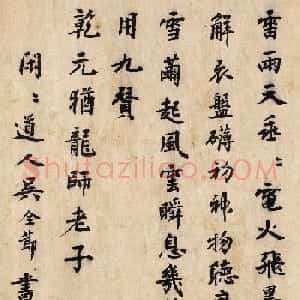 雷雨天垂〻電火飛黑
解衣盤礴初神物聽
雪繭起風雲瞬息幾
用九賛
乾元猶龍師老子
閑〻道人吳全節書
Shufaziliao.com